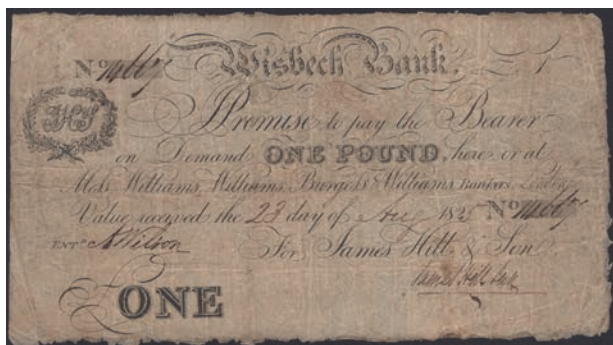 Wisbech Bank. £1
No 14667
I Promise to pay the Bearer
on Demand ONE POUND, here or at
Messrs Williams, Williams, Burgess & Williams, Bankers, London
Value received the 23 day of Aug 1825 No 14667
ENTd A Wilson For James Hill & Son
James Hill Son
£ ONE